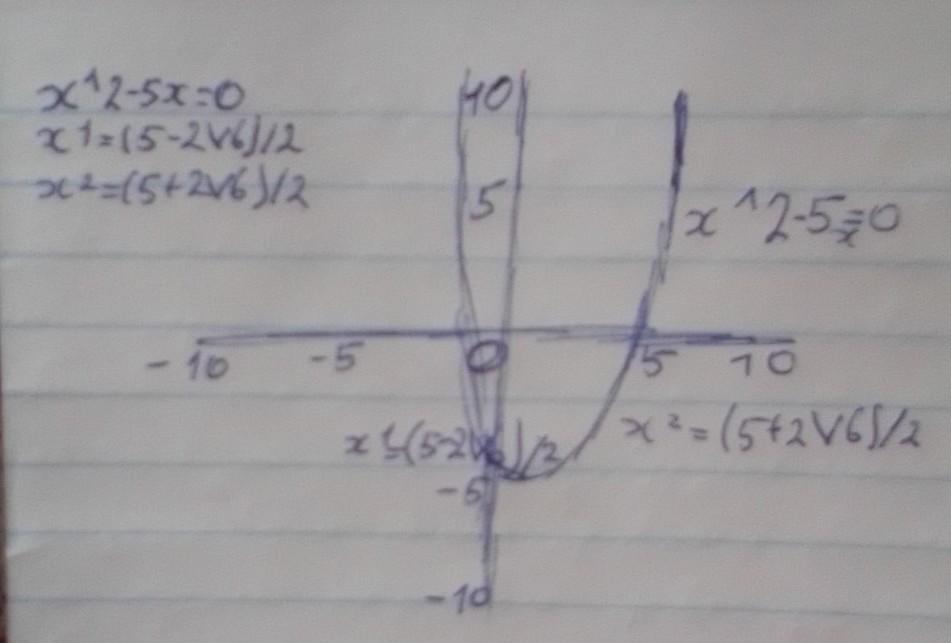 x^2-5x=0
x1=(5-2√6)/2
x2=(5+2√6)/2
10
5
x^2-5x=0
-10 -5 0 5 10
x1=(5-2√6)/2
x2=(5+2√6)/2
-5
-10